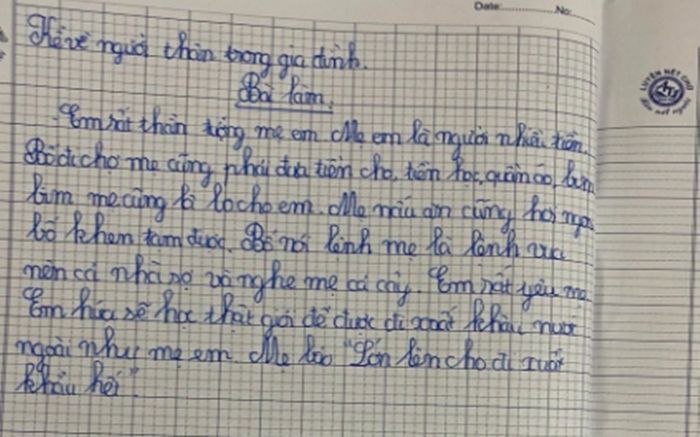 Date: No:
Kể về người thân trong gia đình.
Bài làm.
Em rất thần tượng mẹ em. Mẹ em là người nhiều tiền.
Bố đi chợ mẹ cũng phải đưa tiền cho, tiền học, quần áo,
mẹ cũng lo cho em. Mẹ nấu ăn cũng hơi ngon
bố khen tạm được. Bố nói lệnh mẹ là lệnh vua
nên cả nhà sợ và nghe mẹ cả. Em rất yêu mẹ
Em hứa sẽ học thật giỏi để được đi xuất khẩu nước
ngoài như mẹ em. Mẹ bảo "Lớn lên cho đi xuất
khẩu hết".
LUYỆN NÉT CHỮ